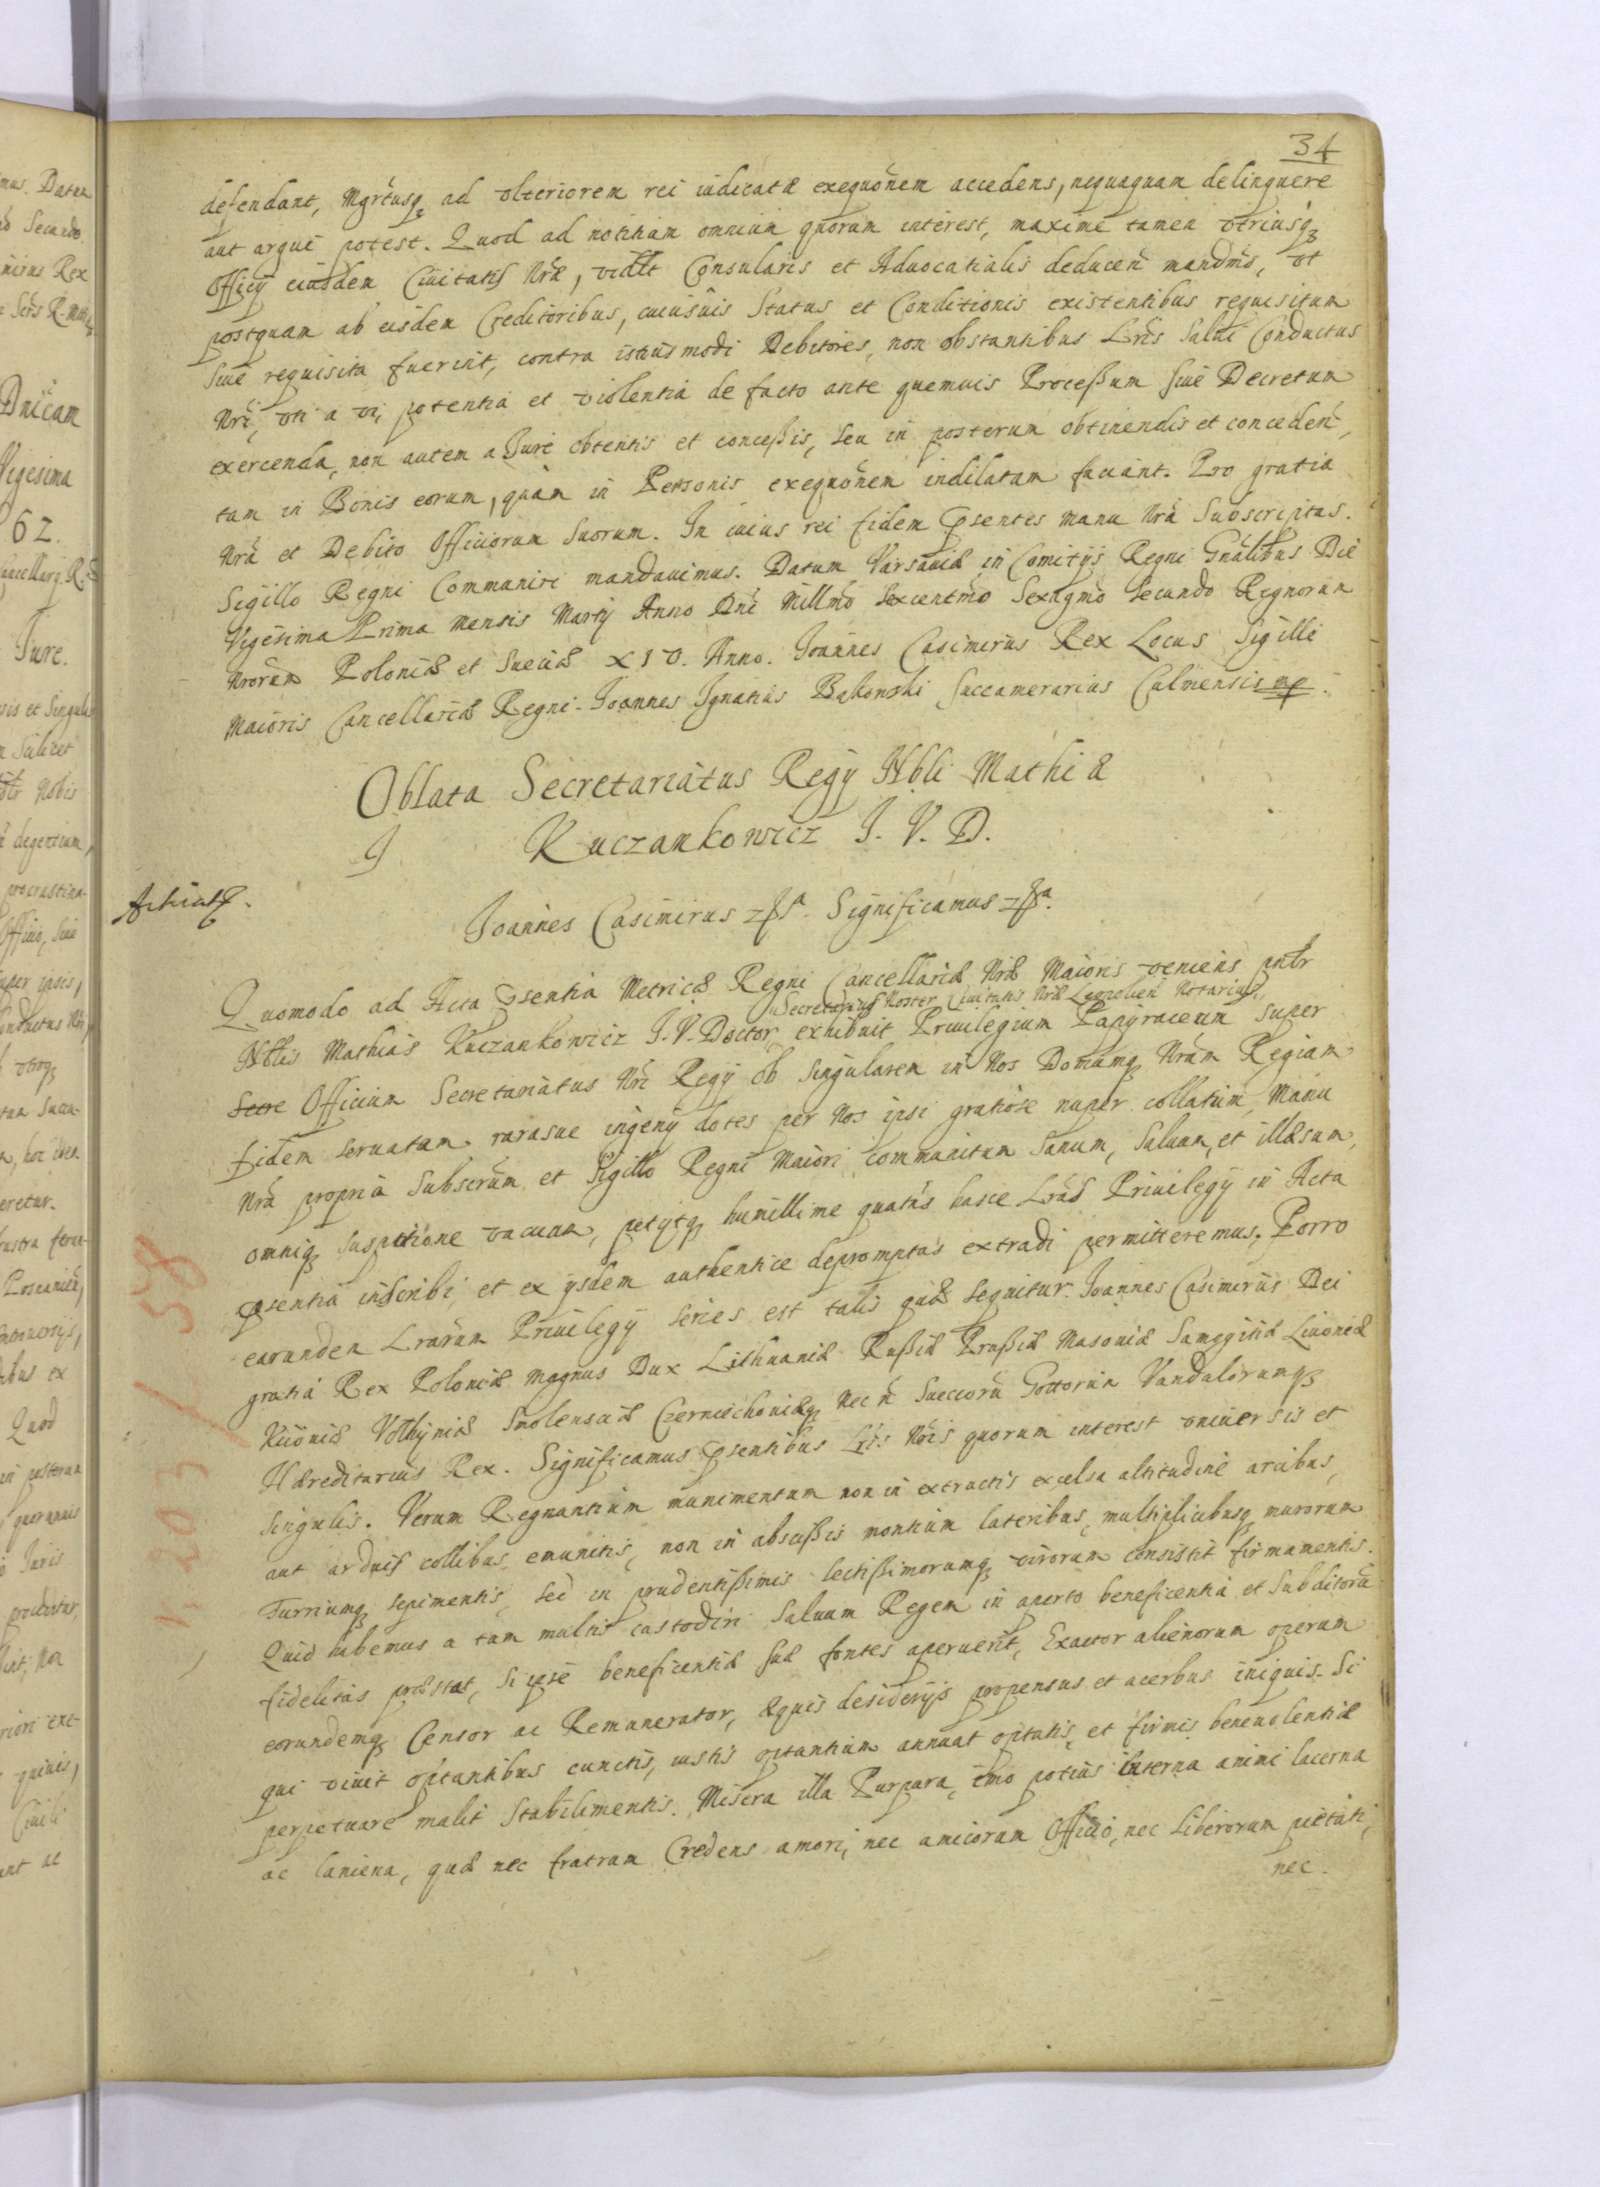 34
defendant, Mgrtusq ad vlteriorem rei iudicatæ exequõnem accedens, nequaquam delinquere
aut argui potest. Quod ad notitiam omnium quorum interest, maxime tamen vtriusq
Officij eiusdem Ciuitatis Nræ, vidlt Consularis et Aduocatialis deducen mandms, vt
postquam ab eisdem Creditoribus, cuiusuis Status et Conditionis existentibus requisitum
siue requisita fuerint, contra istiusmodi Debitores, non obstantibus Lris Salui Conductus
Nri, vti a vi, potentia et violentia de facto ante quemuis Processum siue Decretum
exercenda, non autem a Jure obtentis et concessis, seu in posterum obtinendis et conceden,
tam in Bonis eorum, quàm in Personis exequõnem indilatam faciant. Pro gratia
Nrã et Debito Officiorum Suorum. In cuius rei fidem psentes manu Nrã Subscriptas.
Sigillo Regni Communiri mandauimus. Datum Varsauiæ in Comitijs Regni Gnãlibus Die
Vigesima Prima Mensis Martij Anno Dni Millmo Sexcentmo Sexagmo Secundo Regnorum
Nrorum Poloniæ et Sueciæ XIV. Anno. Joannes Casimirus Rex Locus Sigilli
Maioris Cancellariæ Regni. Joannes Ignatius Bakowski Succamerarius Culmensis mp.
Oblata Secretariatus Regij Nbli Mathiæ
Kuczankowicz J. V. D.
Joannes Casimirus Significamus
Quomodo ad Acta psentia Metricæ Regni Cancellariæ Nræ Maioris veniens pntr
Secretarius Noster Ciuitatis Nræ Leopolien Notarius
Nbilis Mathias Kuczankowicz J. V. Doctor exhibuit Priuilegium Papyraceum super
Secre Officium Secretariatus Nri Regij ob singularem in Nos Domumq Nram Regiam
fidem seruatam rarasue ingenij dotes per Nos ipsi gratiose nuper collatum, Manu
Nrã propria Subscrm et Sigillo Regni Maiori communitum Sanum, Saluum, et illæsum,
omniq suspitione vacuum, petijtq humillime quatãs hasce Lras Priuilegij in Acta
psentia inscribi, et ex ijsdem authentice depromptas extradi permitteremus. Porro
earundem Lrarum Priuilegij series est talis quæ sequitur. Joannes Casimirus Dei
gratia Rex Poloniæ Magnus Dux Lithuaniæ Russiæ Prussiæ Masouiæ Samogitiæ Liuoniæ
Kiiouiæ Volhyniæ Smolensciæ Czerniechouiæq Nec n Suecorũ Gottorum Vandalorumq
Hæreditarius Rex. Significamus psentibus Lris Nris quorum interest vniuersis et
singulis. Verum Regnantium munimentum non in extructis excelsa altitudine arcibus,
aut arduis collibus emunitis, non in abscissis montium lateribus, multiplicibusq murorum
Turriumq sepimentis, sed in prudentissimis lectissimorumq virorum consistit firmamentis.
Quid habemus a tam multis custodiri Saluum Regem in aperto beneficentia et Subditorũ
fidelitas præstat, si ipse beneficentiæ suæ fontes aperuerit, Exactor alienorum operum
eorundemq Censor ac Remunerator, æquis desiderijs propensus et acerbus iniquis. Si
qui viuit optantibus cunctis, iustis optantium annuat optatis, et firmis beneuolentiæ
perpetuare malit stabilimentis. Misera illa Purpura, imo potius interna animi lacerna
ac laniena, quæ nec fratrum Credens amori, nec amicorum Officio, nec Liberorum pietati,
nec.